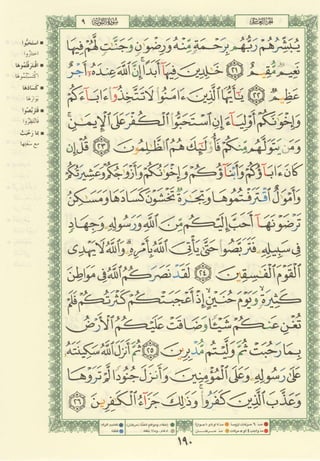 الجزء العاشر
سورة التوبة
٩
يُبَشِّرُهُمْ رَبُّهُم بِرَحْمَةٍ مِّنْهُ وَرِضْوَٰنٍ وَجَنَّٰتٍ لَّهُمْ فِيهَا
نَعِيمٌ مُّقِيمٌ ٢١ خَٰلِدِينَ فِيهَآ أَبَدًا إِنَّ ٱللَّهَ عِندَهُۥٓ أَجْرٌ
عَظِيمٌ ٢٢ يَٰٓأَيُّهَا ٱلَّذِينَ ءَامَنُوا۟ لَا تَتَّخِذُوٓا۟ ءَابَآءَكُمْ
وَإِخْوَٰنَكُمْ أَوْلِيَآءَ إِنِ ٱسْتَحَبُّوا۟ ٱلْكُفْرَ عَلَى ٱلْإِيمَٰنِ
وَمَن يَتَوَلَّهُم مِّنكُمْ فَأُو۟لَٰٓئِكَ هُمُ ٱلظَّٰلِمُونَ ٢٣ قُلْ إِن
كَانَ ءَابَآؤُكُمْ وَأَبْنَآؤُكُمْ وَإِخْوَٰنُكُمْ وَأَزْوَٰجُكُمْ وَعَشِيرَتُكُمْ
وَأَمْوَٰلٌ ٱقْتَرَفْتُمُوهَا وَتِجَٰرَةٌ تَخْشَوْنَ كَسَادَهَا وَمَسَٰكِنُ
تَرْضَوْنَهَآ أَحَبَّ إِلَيْكُم مِّنَ ٱللَّهِ وَرَسُولِهِۦ وَجِهَادٍ
فِى سَبِيلِهِۦ فَتَرَبَّصُوا۟ حَتَّىٰ يَأْتِىَ ٱللَّهُ بِأَمْرِهِۦ وَٱللَّهُ لَا يَهْدِى
ٱلْقَوْمَ ٱلْفَٰسِقِينَ ٢٤ لَقَدْ نَصَرَكُمُ ٱللَّهُ فِى مَوَاطِنَ
كَثِيرَةٍ وَيَوْمَ حُنَيْنٍ إِذْ أَعْجَبَتْكُمْ كَثْرَتُكُمْ فَلَمْ
تُغْنِ عَنكُمْ شَيْـًٔا وَضَاقَتْ عَلَيْكُمُ ٱلْأَرْضُ
بِمَا رَحُبَتْ ثُمَّ وَلَّيْتُم مُّدْبِرِينَ ٢٥ ثُمَّ أَنزَلَ ٱللَّهُ سَكِينَتَهُۥ
عَلَىٰ رَسُولِهِۦ وَعَلَى ٱلْمُؤْمِنِينَ وَأَنزَلَ جُنُودًا لَّمْ تَرَوْهَا
وَعَذَّبَ ٱلَّذِينَ كَفَرُوا۟ وَذَٰلِكَ جَزَآءُ ٱلْكَٰفِرِينَ ٢٦
استحبوا
اختاروا
اقترفتموها
اكتسبتموها
كسادها
بوارها
فتربصوا
فانتظروا
بما رحبت
مع سعتها
١٩٠